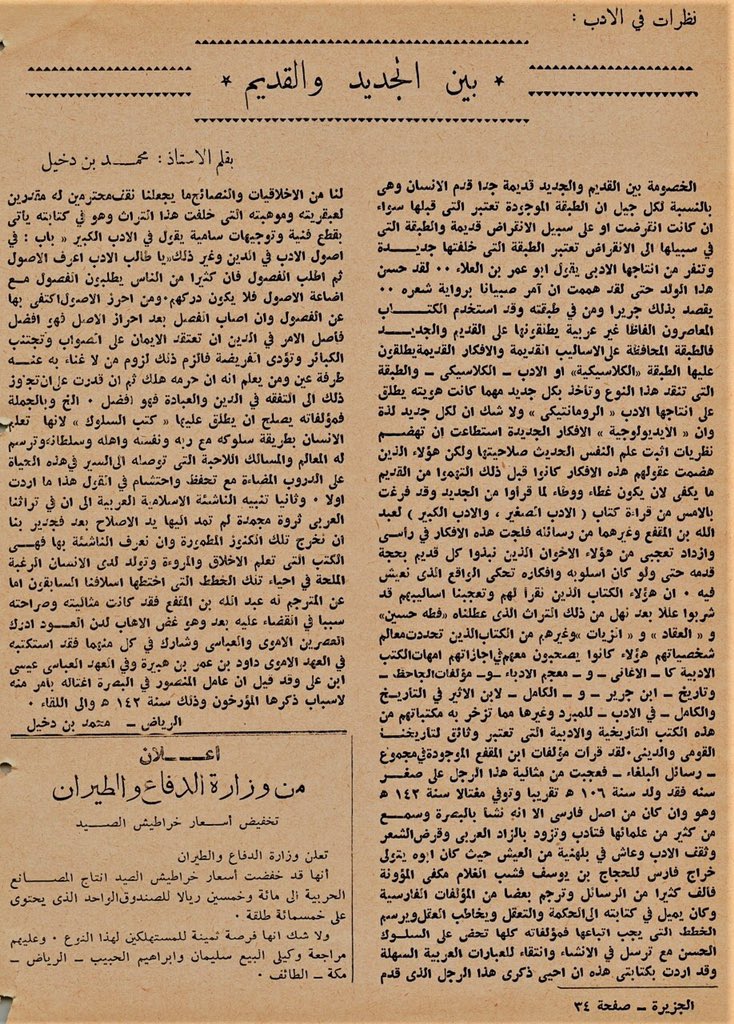 نظرات في الادب :
* بين الجديد والقديم *
بقلم الاستاذ : محمد بن دخيل
الخصومة بين القديم والجديد قديمة جدا قدم الانسان وهى
بالنسبة لكل جيل ان الطبقة الموجودة تعتبر التى قبلها سواء
ان كانت انقرضت او على سبيل الانقراض قديمة والطبقة التى
في سبيلها الى الانقراض تعتبر الطبقة التى خلفتها جديدة
وتنفر من انتاجها الادبى يقول ابو عمر بن العلاء ٠٠ لقد حسن
هذا الولد حتى لقد هممت ان آمر صبياننا برواية شعره ٠٠
يقصد بذلك جريرا ومن في طبقته وقد استخدم الكتاب
المعاصرون الفاظا غير عربية يطلقونها على القديم والجديد
فالطبقة المحافظة على الاساليب القديمة والافكار القديمة يطلقون
عليها الطبقة «الكلاسيكية» او الادب ـ الكلاسيكى ـ والطبقة
التى تنقد هذا النوع وتأخذ بكل جديد مهما كانت هويته يطلق
على انتاجها الادب « الرومانتيكى » ولا شك ان لكل جديد لذة
وان « الايديولوجية » الافكار الجديدة استطاعت ان تهضم
نظريات اثبت علم النفس الحديث صلاحيتها ولكن هؤلاء الذين
هضمت عقولهم هذه الافكار كانوا قبل ذلك التهموا من القديم
ما يكفى لان يكون غطاء ووطاء لما قرأوا من الجديد وقد فرغت
بالامس من قراءة كتاب ( الادب الصغير ، والادب الكبير ) لعبد
الله بن المقفع وغيرهما من رسائله فلجت هذه الافكار في رأسى
وازداد تعجبى من هؤلاء الاخوان الذين نبذوا كل قديم بحجة
قدمه حتى ولو كان اسلوبه وافكاره تحكى الواقع الذى نعيش
فيه ٠ ان هؤلاء الكتاب الذين نقرأ لهم وتعجبنا اساليبهم قد
شربوا عللا بعد نهل من ذلك التراث الذى عطلناه «فطه حسين»
و « العقاد » و « الزيات »وغيرهم من الكتاب الذين تحددت معالم
شخصياتهم هؤلاء كانوا يصحبون معهم في اجازاتهم امهات الكتب
الادبية كا ـ الاغانى ـ و ـ معجم الادباء ـ و ـ مؤلفات الجاحظ ـ
وتاريخ ـ ابن جرير ـ و ـ الكامل ـ لابن الاثير في التاريخ
والكامل ـ في الادب ـ للمبرد وغيرها مما تزخر به مكتباتهم من
هذه الكتب التأريخية والادبية التى تعتبر وثائق لتاريخنا
القومى والدينى ٠ لقد قرأت مؤلفات ابن المقفع الموجودة في مجموع
ـ رسائل البلغاء ـ فعجبت من مثالية هذا الرجل على صغر
سنه فقد ولد سنة ١٠٦ ه تقريبا وتوفي مغتالا سنة ١٤٢ ه
وهو وان كان من اصل فارسى الا انه نشأ بالبصرة وسمع
من كثير من علمائها فتأدب وتزود بالزاد العربى وقرض الشعر
وثقف الادب وعاش في بلهنية من العيش حيث كان ابوه يتولى
خراج فارس للحجاج بن يوسف فشب الغلام مكفى المؤونة
فألف كثيرا من الرسائل وترجم بعضا من المؤلفات الفارسية
وكان يميل في كتابته الى الحكمة والتعقل ويخاطب العقل ويرسم
الخطط التى يجب اتباعها فمؤلفاته كلها تحض على السلوك
الحسن مع ترسل في الانشاء وانتقاء للعبارات العربية السهلة
وقد اردت بكتابتى هذه ان احيى ذكرى هذا الرجل الذى قدم
لنا من الاخلاقيات والنصائح ما يجعلنا نقف محترمين له مقدرين
لعبقريته وموهبته التى خلفت هذا التراث وهو في كتابته يأتى
بقطع فنية وتوجيهات سامية يقول في الادب الكبير « باب : في
اصول الادب في الدين وغير ذلك»يا طالب الادب اعرف الاصول
ثم اطلب الفصول فان كثيرا من الناس يطلبون الفصول مع
اضاعة الاصول فلا يكون دركهم ٠ ومن احرز الاصول اكتفى بها
عن الفصول وان اصاب الفصل بعد احراز الاصل فهو افضل
فأصل الامر في الدين ان تعتقد الايمان على الصواب وتجتنب
الكبائر وتؤدى الفريضة فالزم ذلك لزوم من لا غناء به عنه
طرفة عين ومن يعلم انه ان حرمه هلك ثم ان قدرت على ان تجوز
ذلك الى التفقه في الدين والعبادة فهو افضل ٠ الخ وبالجملة
فمؤلفاته يصلح ان يطلق عليها « كتب السلوك » لانها تعلم
الانسان بطريقة سلوكه مع ربه ونفسه واهله وسلطانه وترسم
له المعالم والمسالك اللاحبة التى توصله الى السير في هذه الحياة
على الدروب المضاءة مع تحفظ واحتشام في القول هذا ما اردت
اولا ٠ وثانيا تنبيه الناشئة الاسلامية العربية الى ان في تراثنا
العربى ثروة مجمدة لم تمد اليها يد الاصلاح بعد فجدير بنا
ان نخرج تلك الكنوز المطمورة وان نعرف الناشئة بها فهى
الكتب التى تعلم الاخلاق والمروءة وتولد لدى الانسان الرغبة
الملحة في احياء تلك الخطط التى اختطها اسلافنا السابقون اما
عن المترجم له عبد الله بن المقفع فقد كانت مثاليته وصراحته
سببا في القضاء عليه بعد وهو غض الاهاب لدن العود ادرك
العصرين الاموى والعباسى وشارك في كل منهما فقد استكتبه
في العهد الاموى داود بن عمر بن هبيرة وفي العهد العباسى عيسى
ابن على وقد قيل ان عامل المنصور في البصرة اغتاله بأمر منه
لاسباب ذكرها المؤرخون وذلك سنة ١٤٢ ه والى اللقاء ٠
الرياض ـ محمد بن دخيل
اعلان
من وزارة الدفاع والطيران
تخفيض أسعار خراطيش الصيد
تعلن وزارة الدفاع والطيران
أنها قد خفضت أسعار خراطيش الصيد انتاج المصانع
الحربية الى مائة وخمسين ريالا للصندوق الواحد الذى يحتوى
على خمسمائة طلقة ٠
ولا شك انها فرصة ثمينة للمستهلكين لهذا النوع ٠ وعليهم
مراجعة وكيلى البيع سليمان وابراهيم الحبيب ـ الرياض ـ
مكة ـ الطائف ٠
الجزيرة ـ صفحة ٣٤